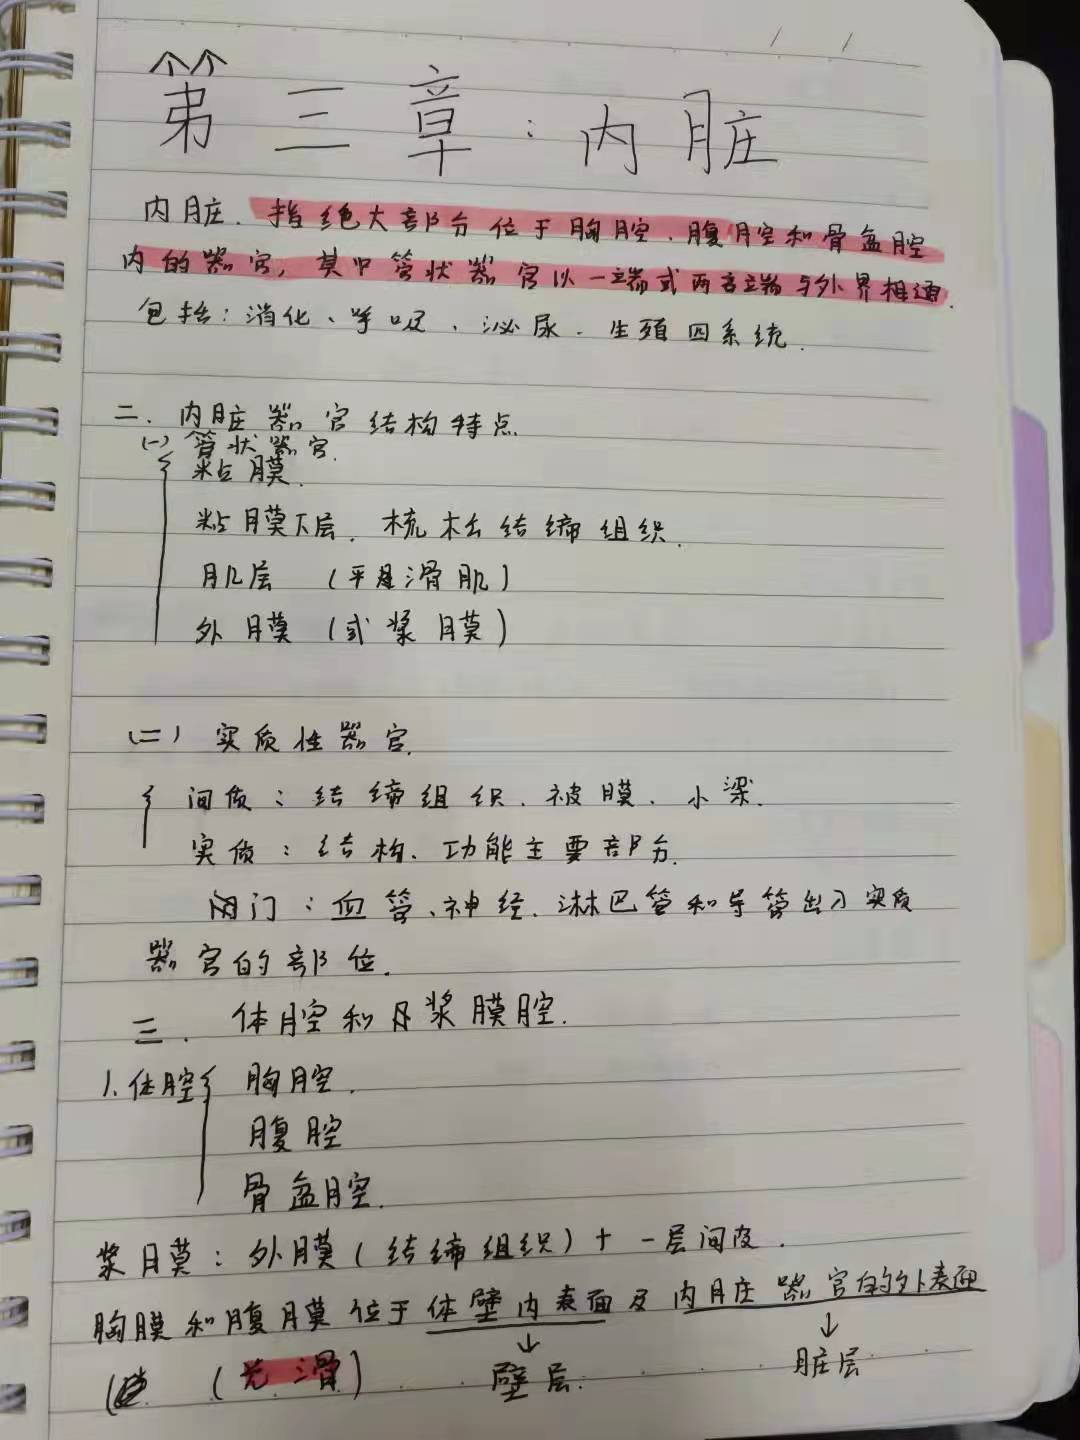 第三章:内脏
内脏.指绝大部分位于胸腔、腹腔和骨盆腔
内的器官,其中管状器官以一端或两端与外界相通.
包括:消化、呼吸、泌尿.生殖四系统.
二.内脏器官结构特点
(一)管状器官.
粘膜.
粘膜下层.梳松结缔组织.
肌层 (平滑肌)
外膜(或浆膜)
(二)实质性器官.
间质:结缔组织.被膜、小梁.
实质:结构、功能主要部分.
门:血管、神经.淋巴管和导管出入实质
器官的部位.
三. 体腔和浆膜腔.
1.体腔 胸腔.
腹腔
骨盆腔.
浆膜:外膜(结缔组织)+一层间皮.
胸膜和腹膜位于体壁内表面及内脏器官的外表面
↓ ↓
(光滑) 壁层. 脏层